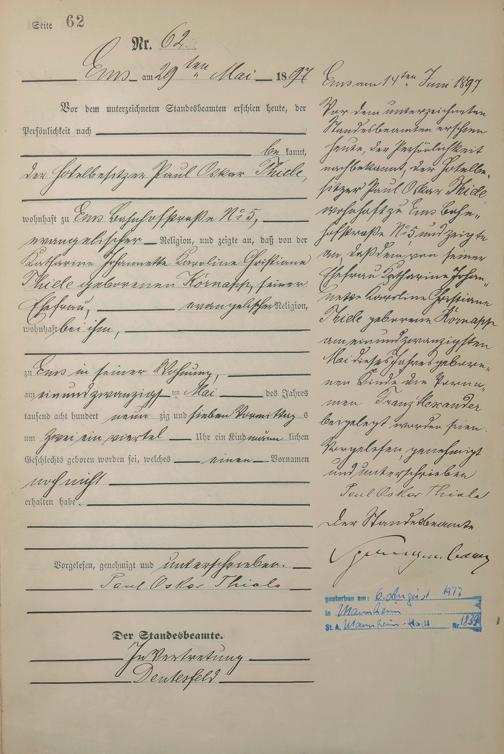 Seite 62
Nr. 62.
Ems am 29ten Mai 1897
Vor dem unterzeichneten Standesbeamten erschien heute, der
Persönlichkeit nach
be kannt,
der Hotelbesitzer Paul Oskar Thiele,
wohnhaft zu Ems Bahnhofstraße No 5,
evangelischer Religion, und zeigte an, daß von der
Katharine Johannette Karoline Christiane
Thiele geborenen, seiner
Ehefrau, evangelischer Religion,
wohnhaft bei ihm,
zu Ems in seiner Wohnung,
am einundzwanzigsten Mai des Jahres
tausend acht hundert neun zig und sieben Vormittags
um zwei ein viertel Uhr ein Kind männlichen
Geschlechts geboren worden sei, welches einen Vornamen
noch nicht
erhalten habe.
Vorgelesen, genehmigt und unterschrieben.
Paul Oskar Thiele
Der Standesbeamte.
In Vertretung
Ems am 14ten Juni 1897
Vor dem unterzeichneten
Standesbeamten erschien
heute, der Persönlichkeit
nach bekannt, der Hotelbe-
sitzer Paul Oskar Thiele
wohnhaft zu Ems Bahn-
hofstraße No 5 und zeigte
an, daß dem von seiner
Ehefrau Katharine Johan-
nette Karoline Christiane
Thiele geborene
am einundzwanzigsten
Mai dieses Jahres gebore-
nen Kinde die Vorna-
men Franz Alexander
beigelegt worden seien.
Vorgelesen genehmigt
und unterschrieben
Paul Oskar Thiele
Der Standesbeamte
gestorben am: 6. August 1977
in Mannheim
St. A. Mannheim Nr.